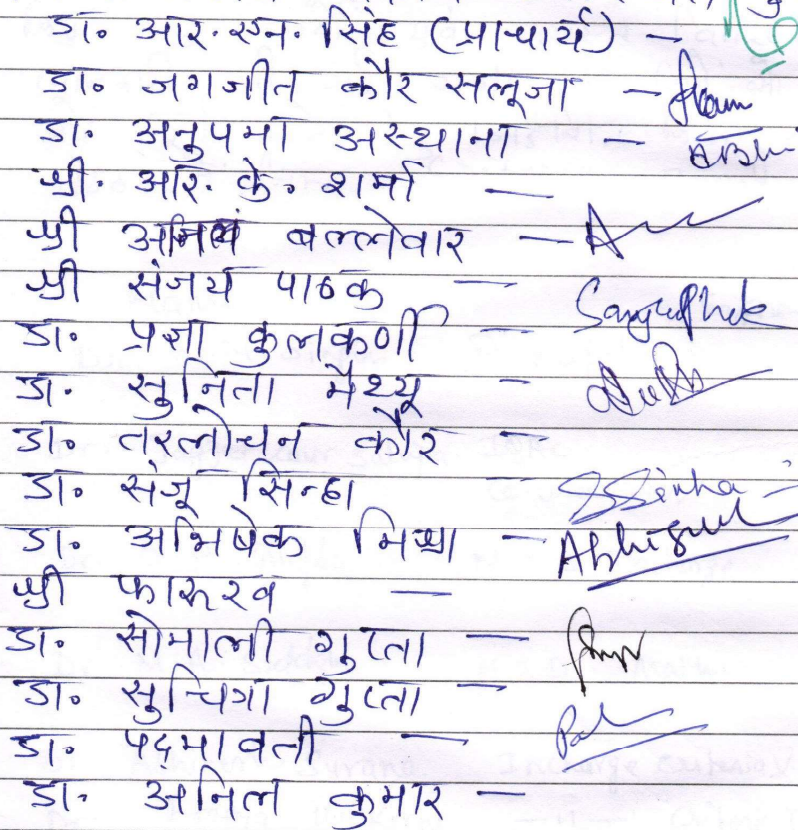 डा. आर. एन. सिंह (प्राचार्य) –
डा. जगजीत कौर सलूजा –
डा. अनुपमा अस्थाना –
श्री. आर. के. शर्मा –
श्री बल्लेवार –
श्री संजय पाठक –
डा. प्रज्ञा कुलकर्णी –
डा. सुनिता मैथ्यू –
डा. तरलोचन कौर –
डा. संजू सिन्हा – SSinha
डा. अभिषेक मिश्रा –
श्री फारूख –
डा. सोमाली गुप्ता –
डा. सुचित्रा गुप्ता –
डा. पदमावती –
डा. अनिल कुमार –